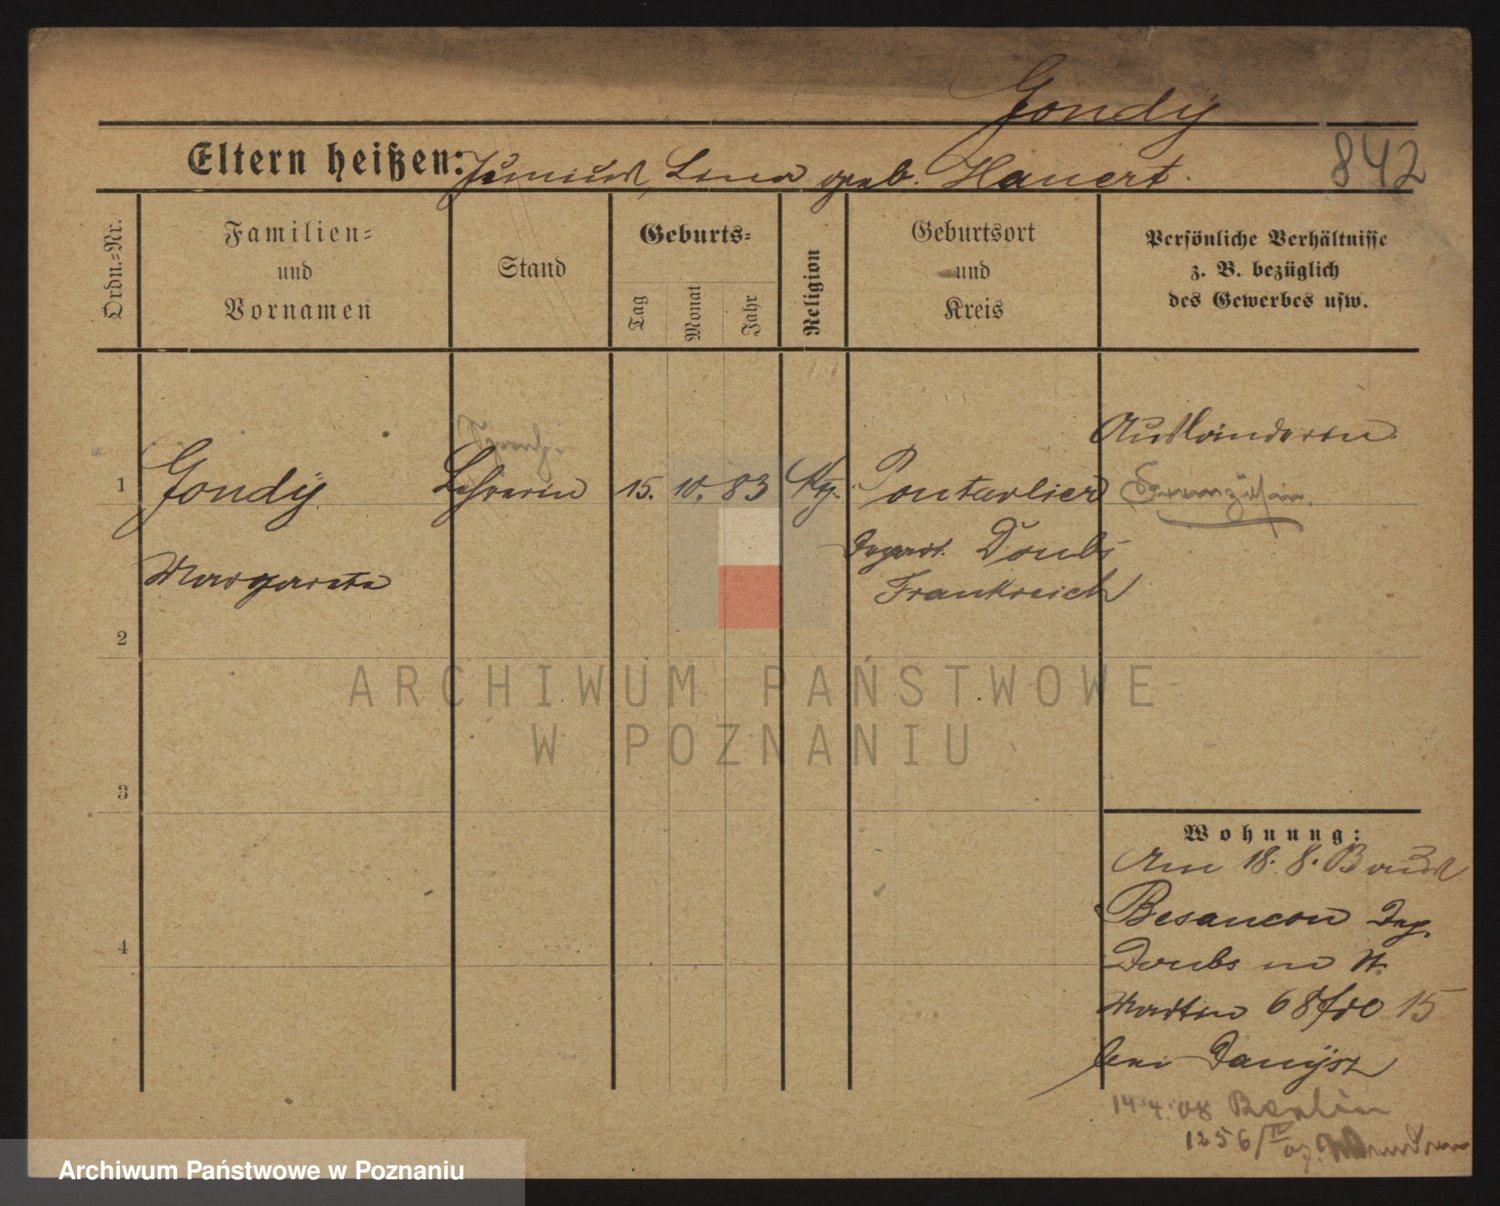 Gondÿ
842
Eltern heißen: Lina geb. Hauert.
Ordn.=Nr.
Familien=
und
Vornamen
Stand
Geburts=
Tag
Monat
Jahr
Religion
Geburtsort
und
Kreis
Persönliche Verhältnisse
z. B. bezüglich
des Gewerbes usw.
Ausländerin.
1 Gondÿ Lehrerin 15. 10. 83 Kg. Pontarlier Französin.
Depart. Doubs
Margareta Frankreich
2
ARCHIWUM PAŃSTWOWE
W POZNANIU
3
Wohnung:
Am 18. 8.
Besancon Dep.
4
Doubs n St.
Martin 68 15
bei Danÿsz
14.4.08 Berlin
1256/IV 07.
Archiwum Państwowe w Poznaniu